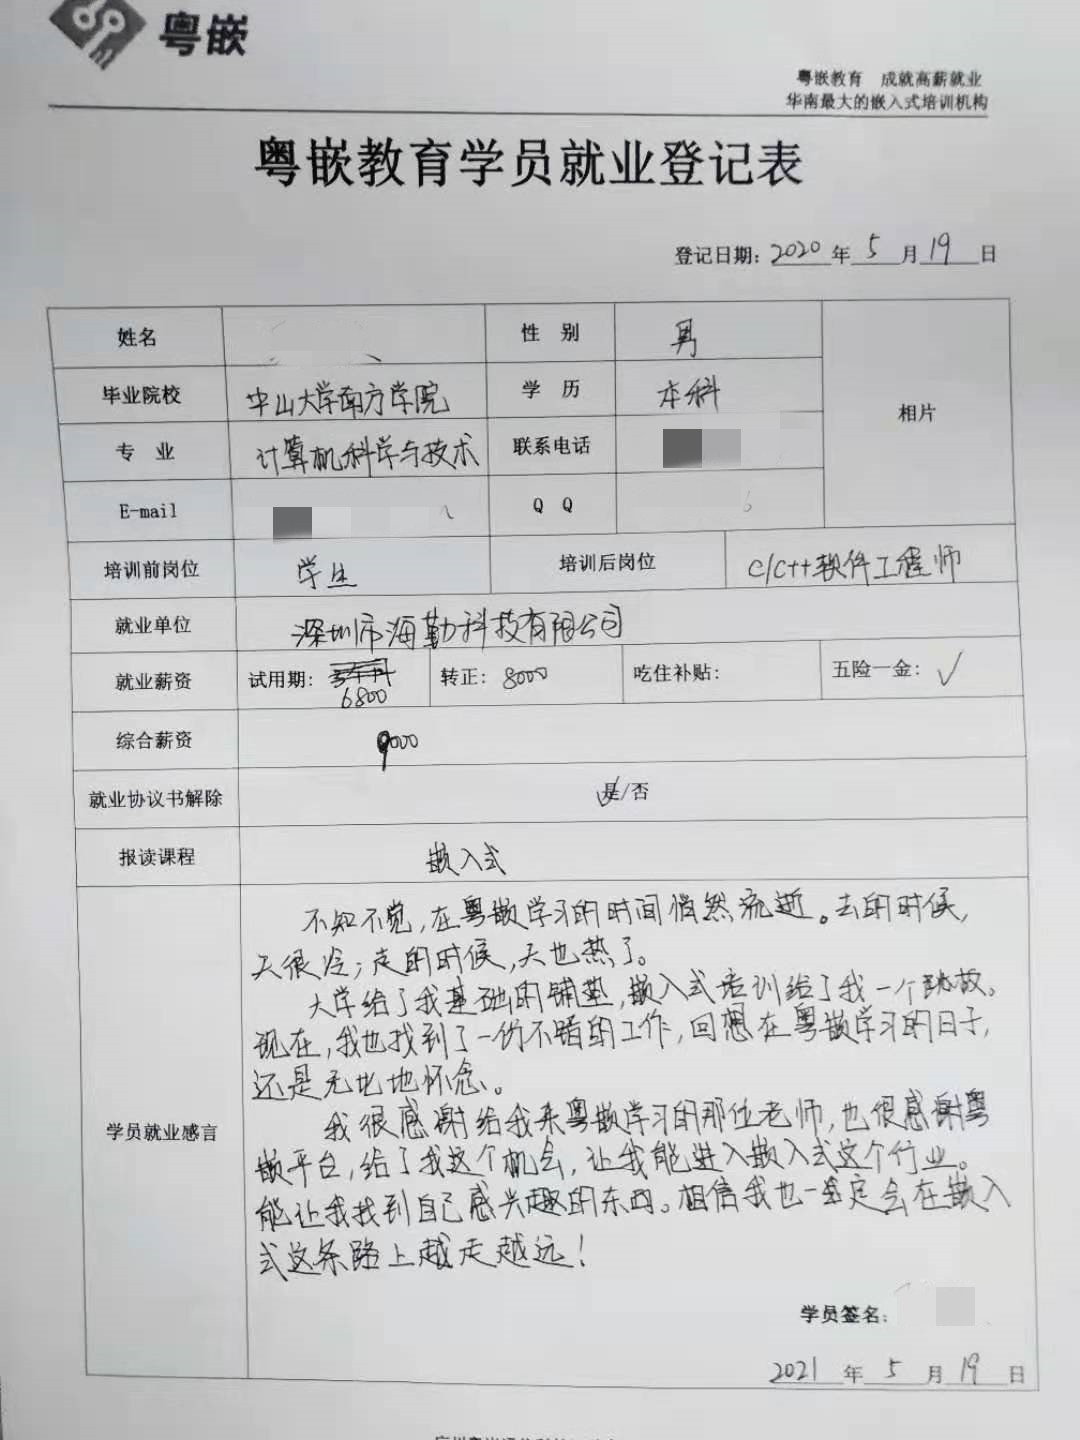 粤嵌
粤嵌教育 成就高薪就业
华南最大的嵌入式培训机构
粤嵌教育学员就业登记表
登记日期：2020年5月19日
姓名 性 别 男
相片
毕业院校 中山大学南方学院 学 历 本科
专 业 计算机科学与技术 联系电话
E-mail Q Q
培训前岗位 学生 培训后岗位 C/C++软件工程师
就业单位 深圳市海勤科技有限公司
就业薪资 试用期： 6800 转正：8000 吃住补贴： 五险一金：✓
综合薪资 9000
就业协议书解除 是/否
报读课程 嵌入式
学员就业感言
不知不觉，在粤嵌学习的时间悄然流逝。去的时候，
天很冷；走的时候，天也热了。
大学给了我基础的铺垫，嵌入式培训给了我一个跳板。
现在，我也找到了一份不错的工作，回想在粤嵌学习的日子，
还是无比地怀念。
我很感谢给我来粤嵌学习的那位老师，也很感谢粤
嵌平台，给了我这个机会，让我能进入嵌入式这个行业。
能让我找到自己感兴趣的东西。相信我也一定会在嵌入
式这条路上越走越远！
学员签名：
2021年5月19日